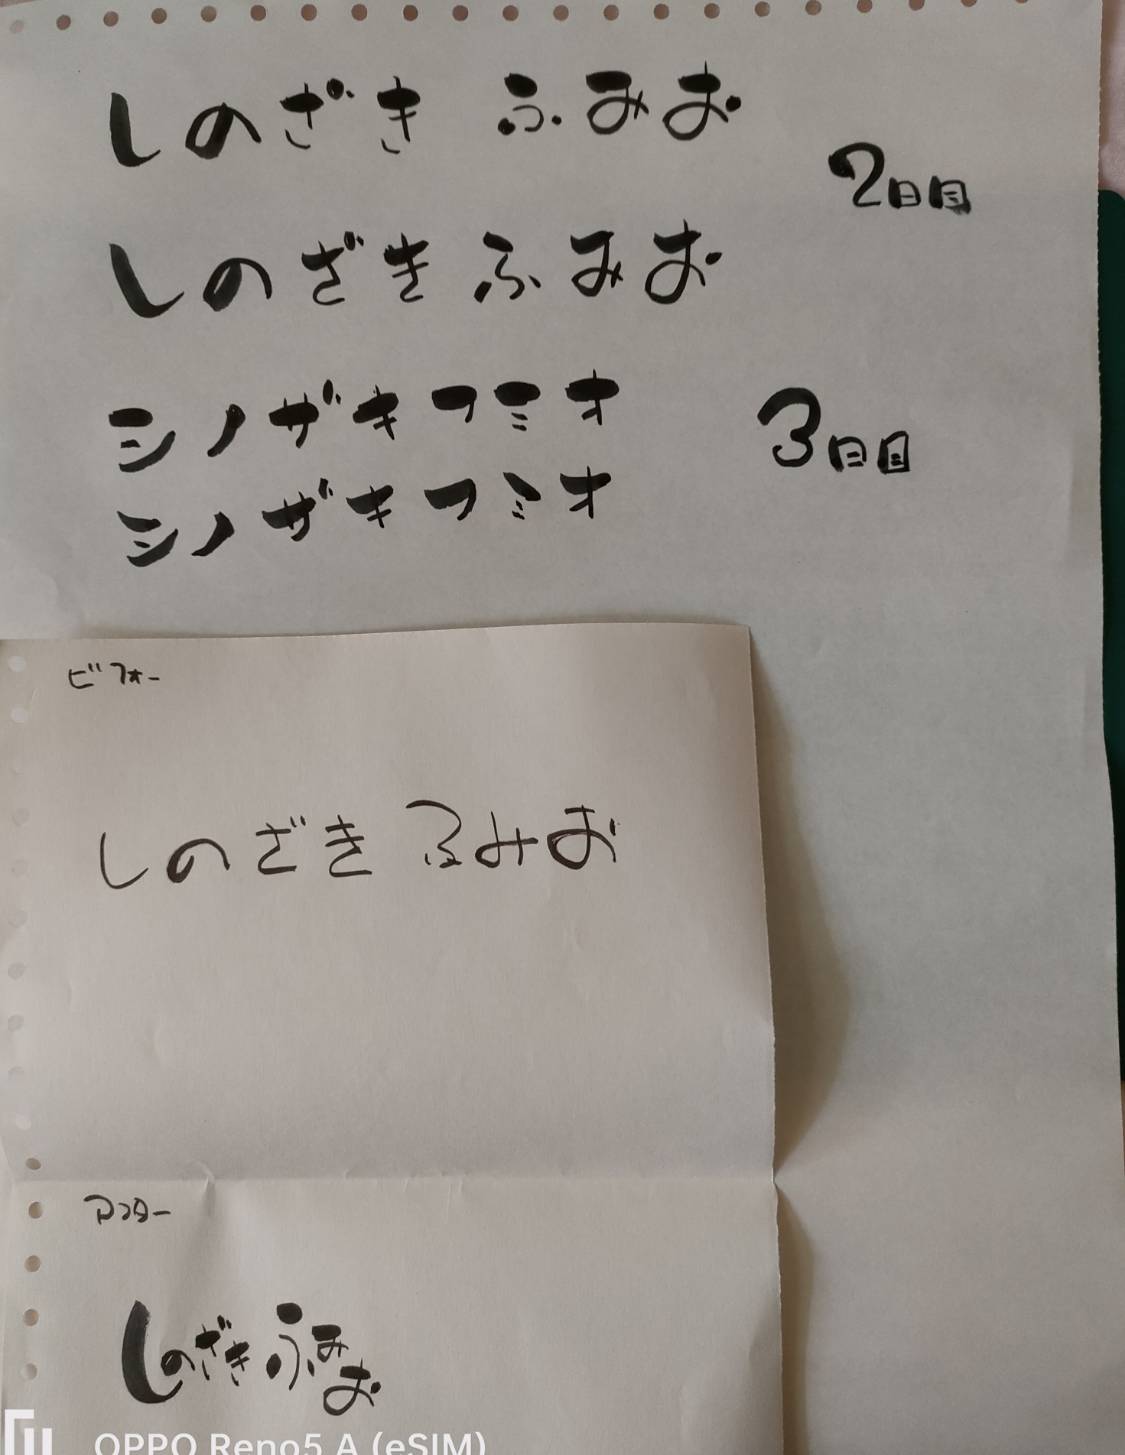 しのざき ふみお
2日目
しのざき ふみお
シノザキフミオ
3日目
シノザキフミオ
ビフォー
しのざき ふみお
アフター
しのざき ふみお
OPPO Reno5 A (eSIM)